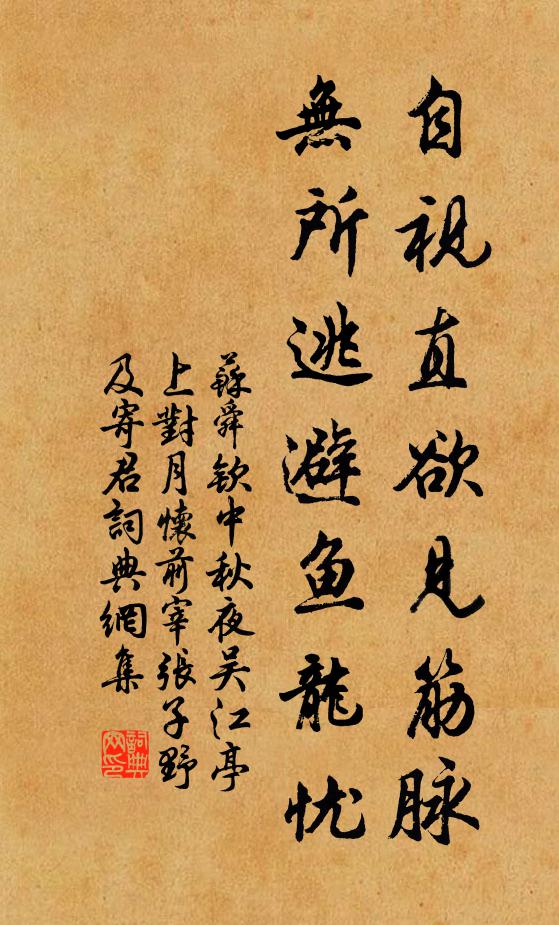 自視直欲見筋脉
無所逃避鱼龍忧
蘇舜欽中秋夜吴江亭
上對月懷前宰張子野
及寄君詞典網集
詞典
网印